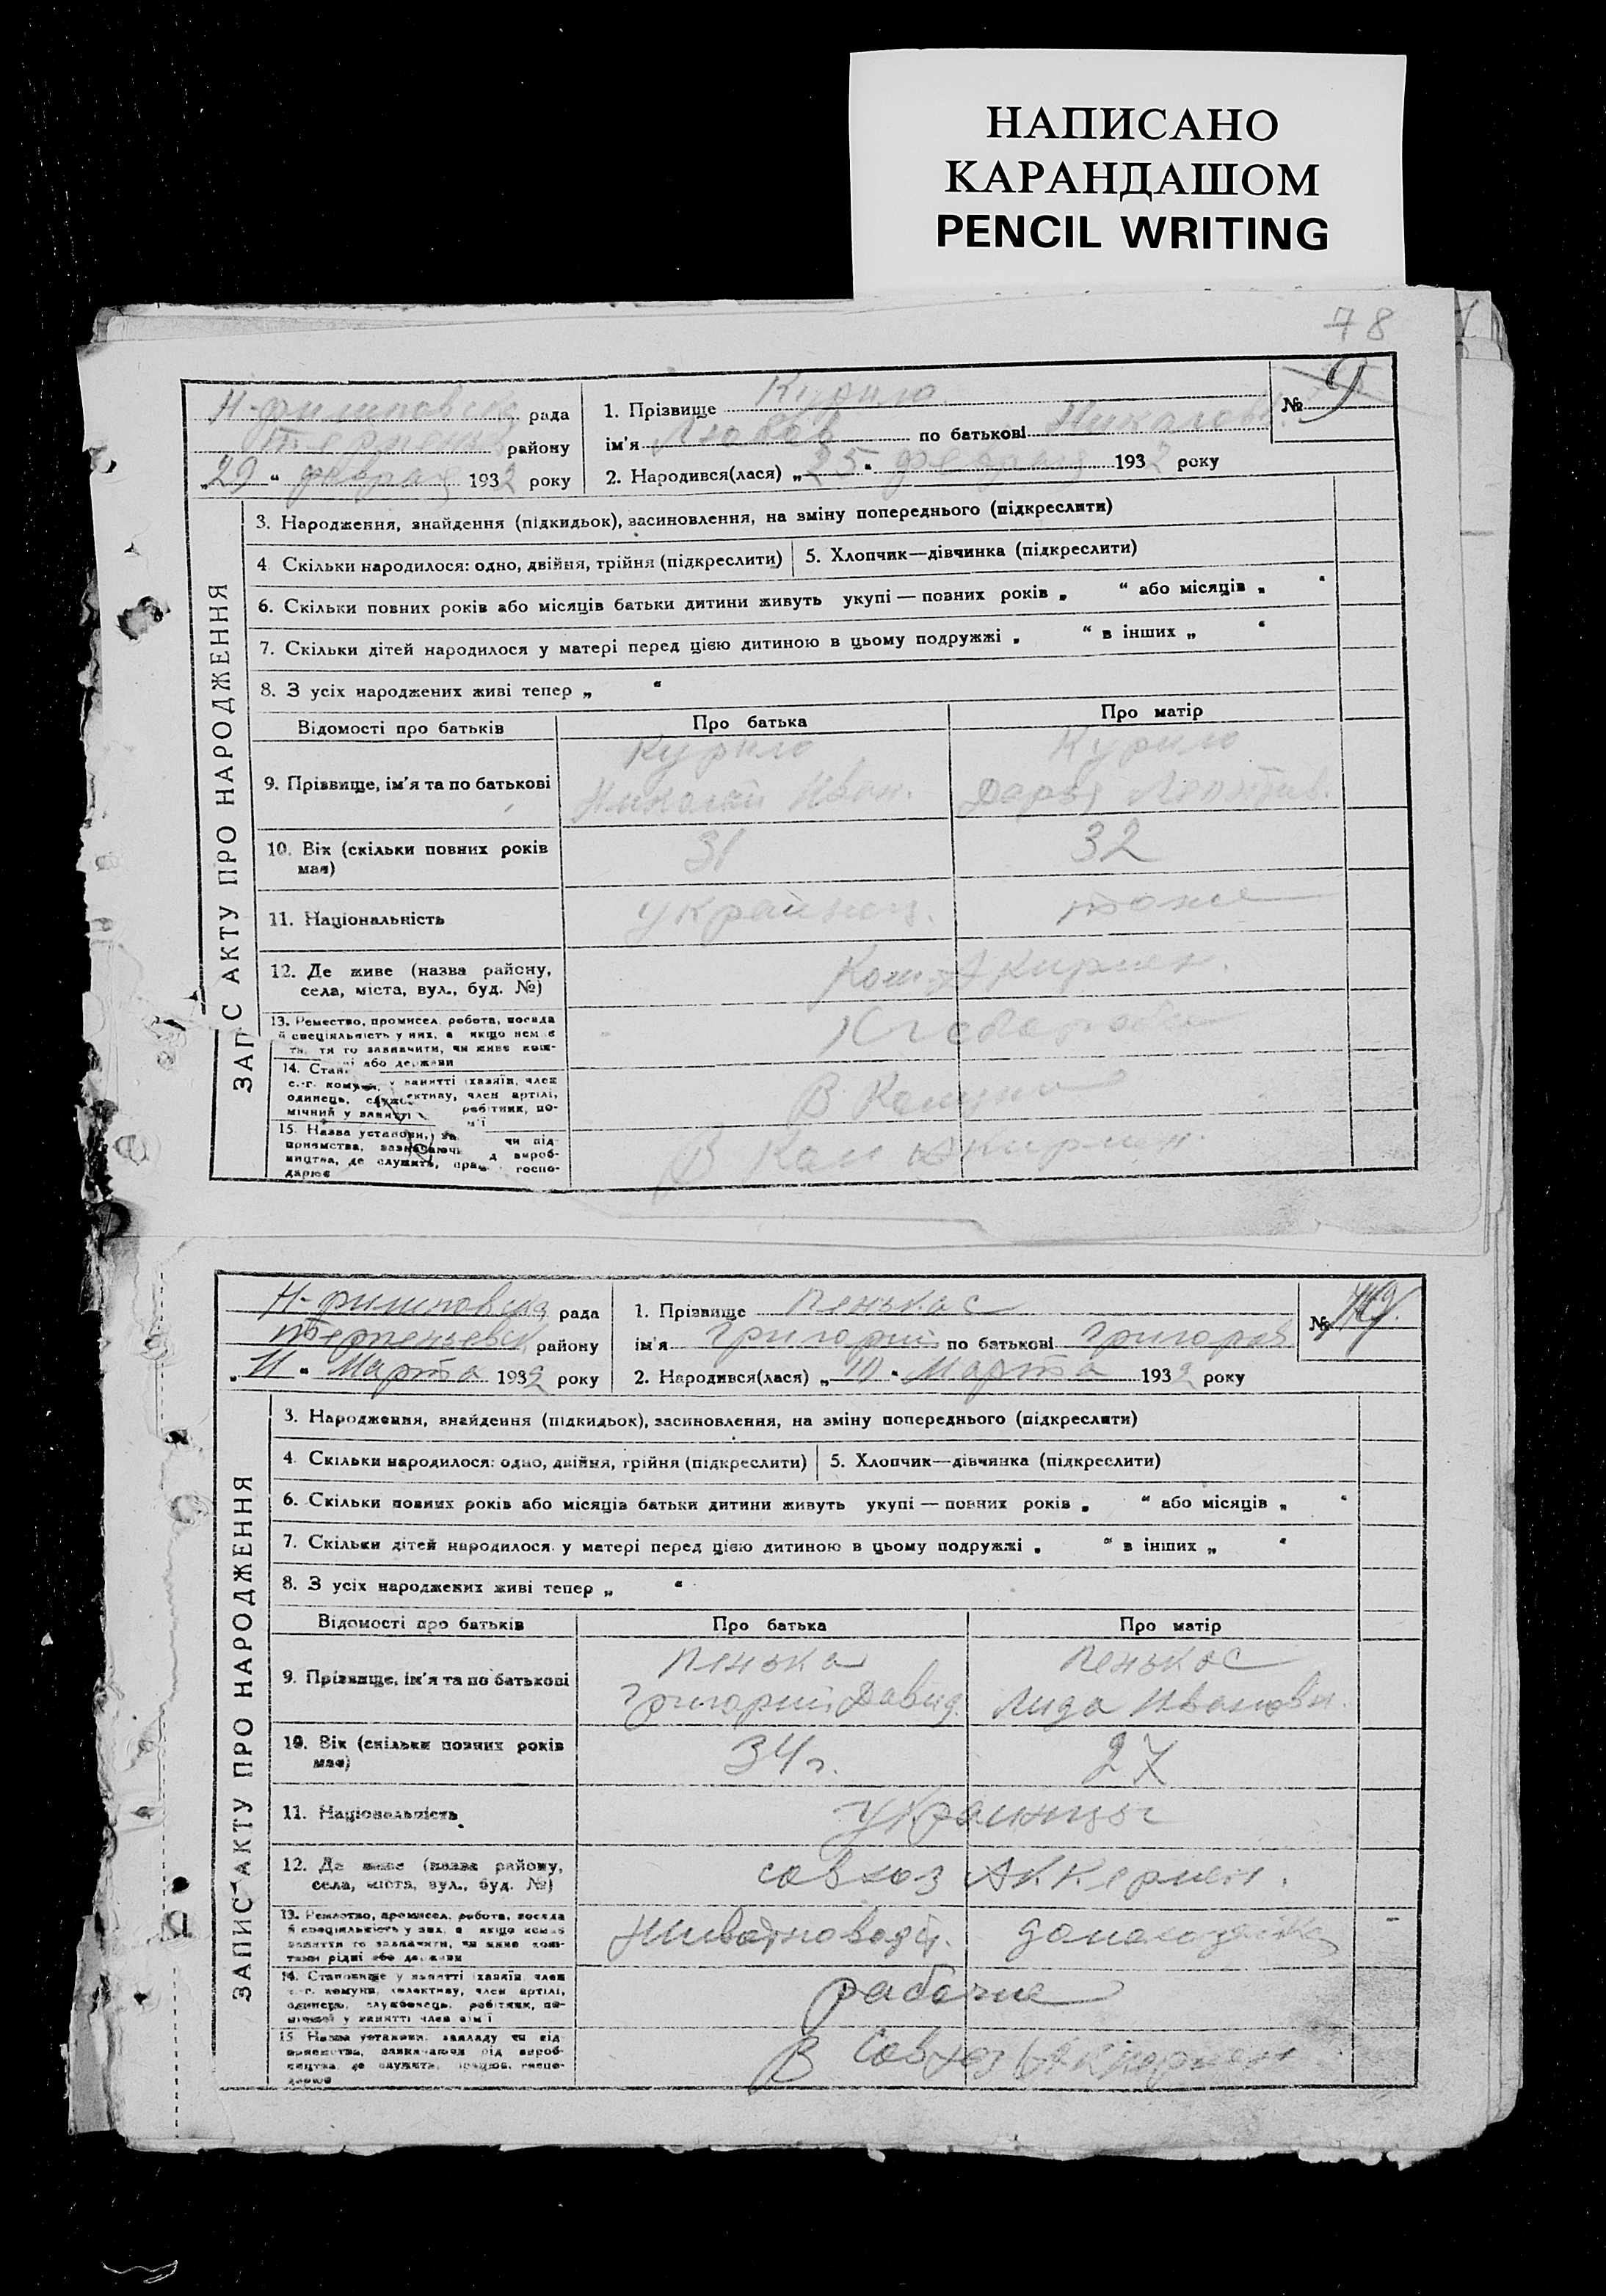 НАПИСАНО
КАРАНДАШОМ
PENCIL WRITING
78
Н-филиповск рада
район у
„29“ феврал 1932 року
1. Прізвище Курило
ім'я Любов по батькові Николаев
2. Народився(лася) „25“ феврал 1932 року
№ 9
ЗАПИС АКТУ ПРО НАРОДЖЕННЯ
3. Народження, знайдення (підкидьок), засиновлення, на зміну попереднього (підкреслити)
4 Скільки народилося: одно, двійня, трійня (підкреслити) 5. Хлопчик—дівчинка (підкреслити)
6. Скільки повних років або місяців батьки дитини живуть укупі — повних років „ “ або місяців „ “
7. Скільки дітей народилося у матері перед цією дитиною в цьому подружжі „ “ в інших „ “
8. З усіх народжених живі тепер „ “
Відомості про батьків Про батька Про матір
9. Прізвище, ім'я та по батькові
Курило Курило
Николай Иван. Дарья Леонтив.
10. Вік (скільки повних років
має)
31 32
11. Національність Украинец. тоже
12. Де живе (назва району,
села, міста, вул., буд. №)
Ком. Акирмен.
13. Ремество, промисел, робота, посада
й спеціяльність у них, а якщо нем є
то зазначити, чи живе кош-
або держави
14. Стан у занятті (хазяїн, член
с.-г. комун
одинець, член артілі,
робітник, по-
мічний у занятті
В Комуне
15. Назва установи, за чи під-
приємства, зазначаючи д вироб-
ництва, де служить, прац госпо-
дарює
В Ком Акирмен.
Н-филиповска рада
Терпеньевск району
„11“ Марта 1932 року
1. Прізвище Пенькас
ім'я Григорий по батькові Григорев
2. Народився(лася) „10“ Марта 1932 року
№
ЗАПИС АКТУ ПРО НАРОДЖЕННЯ
3. Народження, знайдення (підкидьок), засиновлення, на зміну попереднього (підкреслити)
4. Скільки народилося: одно, двійня, трійня (підкреслити) 5. Хлопчик—дівчинка (підкреслити)
6. Скільки повних років або місяців батьки дитини живуть укупі — повних років „ “ або місяців „ “
7. Скільки дітей народилося у матері перед цією дитиною в цьому подружжі „ “ в інших „ “
8. З усіх народжених живі тепер „ “
Відомості про батьків Про батька Про матір
9. Прізвище, ім'я та по батькові
Пенька Пенькас
Григорий Давид. Лида Ивановн.
10. Вік (скільки повних років
має)
34 г. 27
11. Національність Украинцы
12. Де живе (назва району,
села, міста, вул., буд. №)
совхоз Аккермен.
13. Ремество, промисел, робота, посада
й спеціяльність у них, а якщо немає
заняття то зазначити, чи живе кош-
тами рідні або держави
Животновод домохозяйка
14. Становище у занятті (хазяїн член
с.-г. комуни, колективу, член артілі,
одинець, службовець, робітник, по-
мічний у занятті член сім'ї
рабочие
15. Назва установи, закладу чи під-
приємства, зазначаючи рід вироб-
ництва, де служить, працює, госпо-
дарює
В Совхоз Аккермен